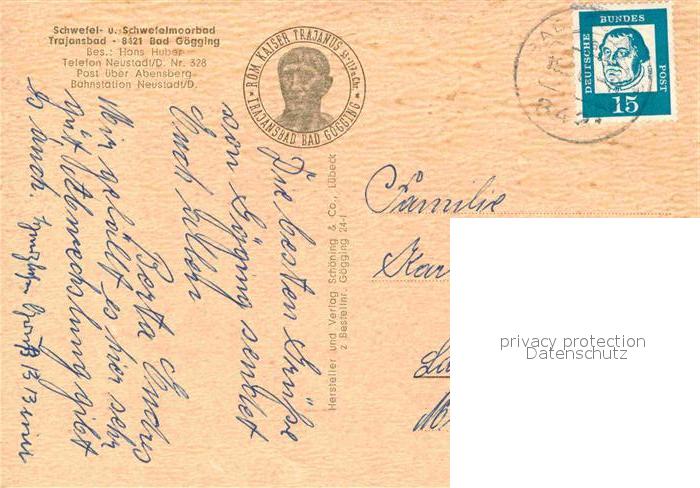 Schwefel- u. Schwefelmoorbad
Trajansbad - 8421 Bad Gögging
Bes.: Hans Huber
Telefon Neustadt/D. Nr. 328
Post über Abensberg
Bahnstation Neustadt/D.
RÖM. KAISER TRAJANUS 53-117 n.Chr.
* TRAJANSBAD BAD GÖGGING *
DEUTSCHE BUNDES POST
15
Die besten Grüße
von Gögging sendet
Euch allen
Berta Endres
Mir gefällt es hier sehr
gut Abwechslung gibt
es auch.
Hersteller und Verlag Schöning & Co., Lübeck
z Bestellnr. Gögging 24-I
Familie
privacy protection
Datenschutz